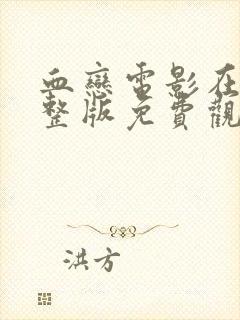 血戀電影在
整版免費觀
洪方